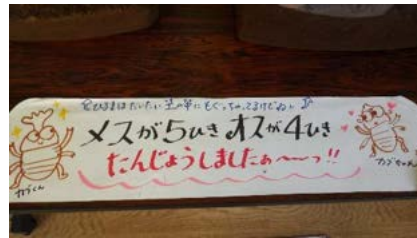 ひるまはだいたい土の中にもぐっちゃってるけどね
メスが5ひき オスが4ひき
たんじょうしましたぁ〜〜っ!!
カブくん